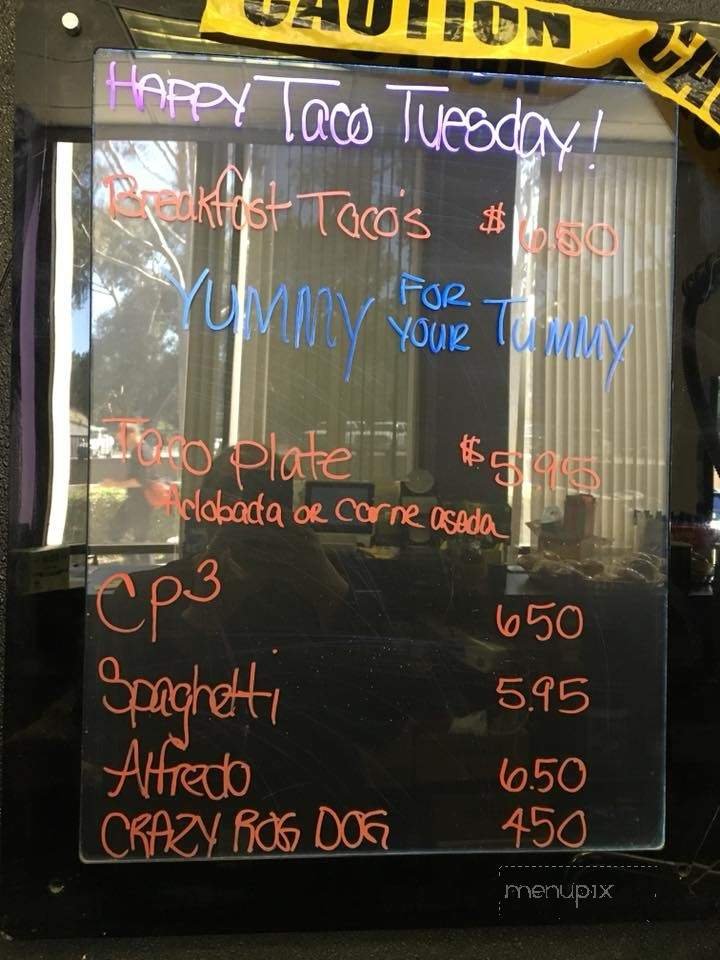 CAUTION
CA
HAPPY Taco Tuesday!
Breakfast Taco's $6.50
YUMMY FOR YOUR TUMMY
Taco plate $5.95
*Adobada or carne asada
CP3 650
Spaghetti 5.95
Alfredo 6.50
CRAZY ROG DOG 450
menupix